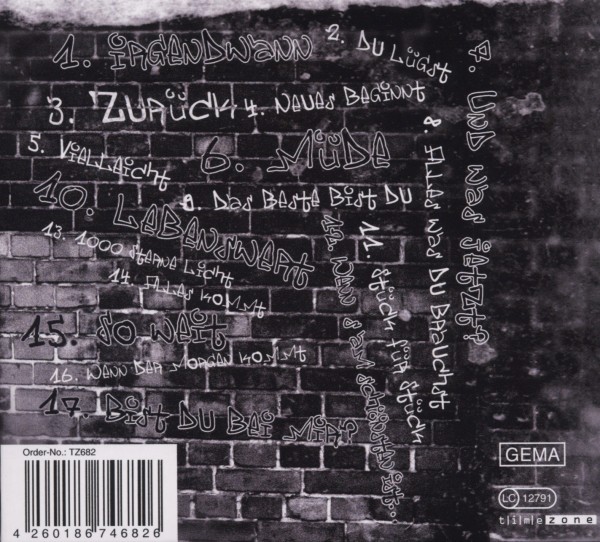 1. IRGENDWANN
2. DU LÜGST
3. ZURÜCK
4. NEUES BEGINNT
5. VIELLEICHT
6. MÜDE
7. UND WAS JETZT?
8. ALLES WAS DU BRAUCHST
9. DAS BESTE BIST DU
10. LEBENSWERT
11. STÜCK FÜR STÜCK
12. WENN'S AM SCHÖNSTEN IST...
13. 1000 STERNE LICHT
14. ALLES KOMMT
15. SO WEIT
16. WENN DER MORGEN KOMMT
17. BIST DU BEI MIR?
Order-No.: TZ682
4 260186 746826
GEMA
LC 12791
timezone